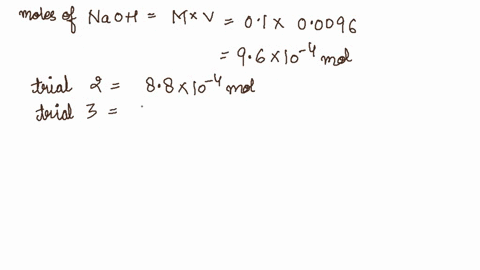 moles of NaOH = M×V = 0.1 × 0.0096
= 9.6 × 10⁻⁴ mol
trial 2 = 8.8 × 10⁻⁴ mol
trial 3 =